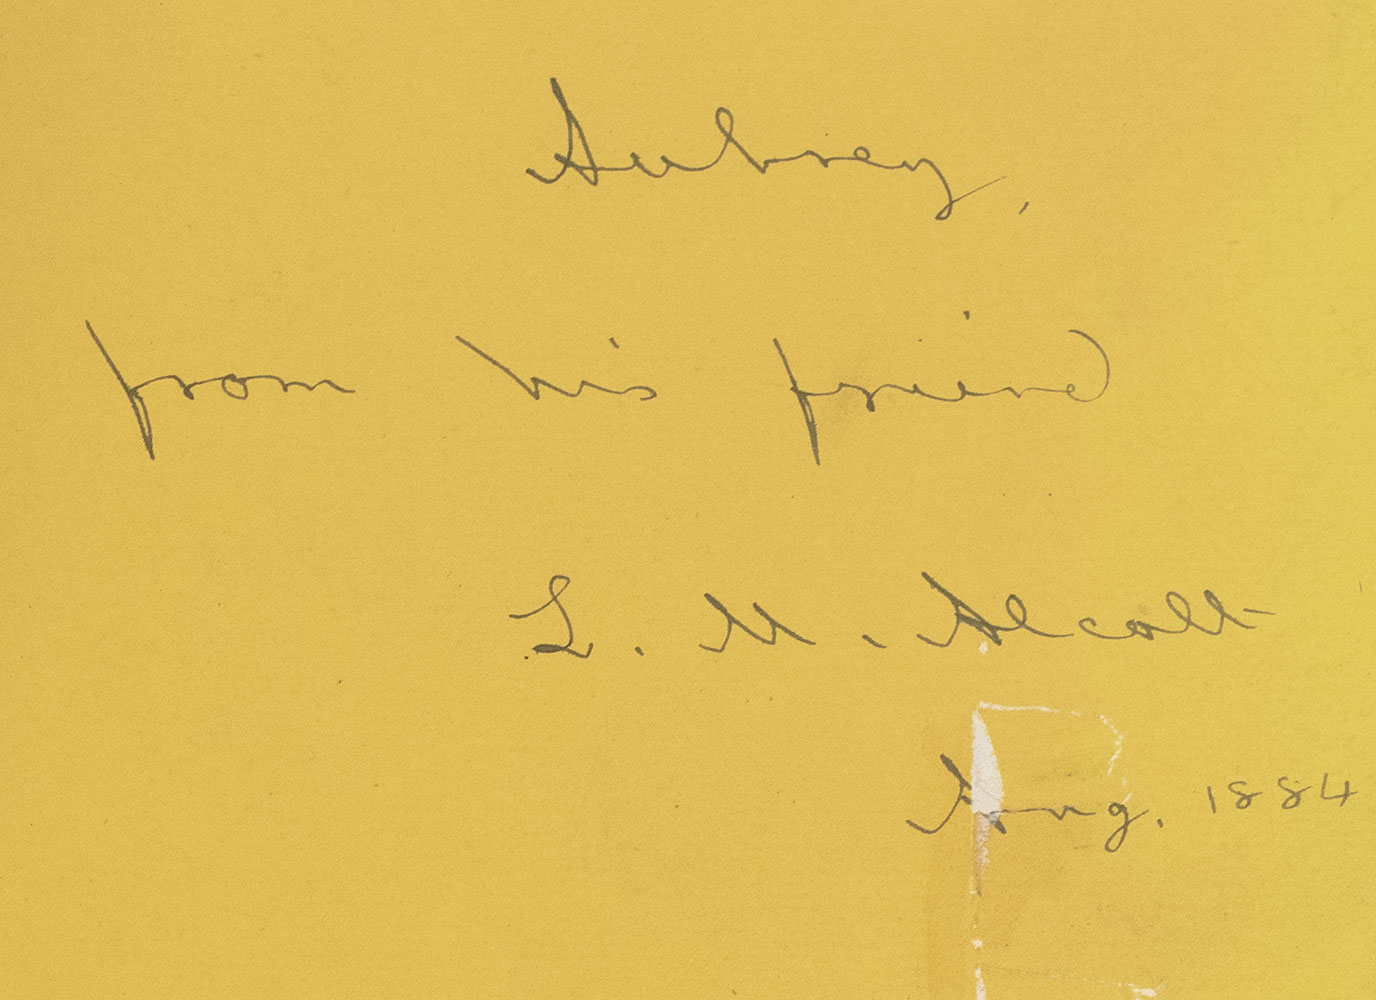 Aubrey,
from his friend
L. M. Alcott
Aug. 1884